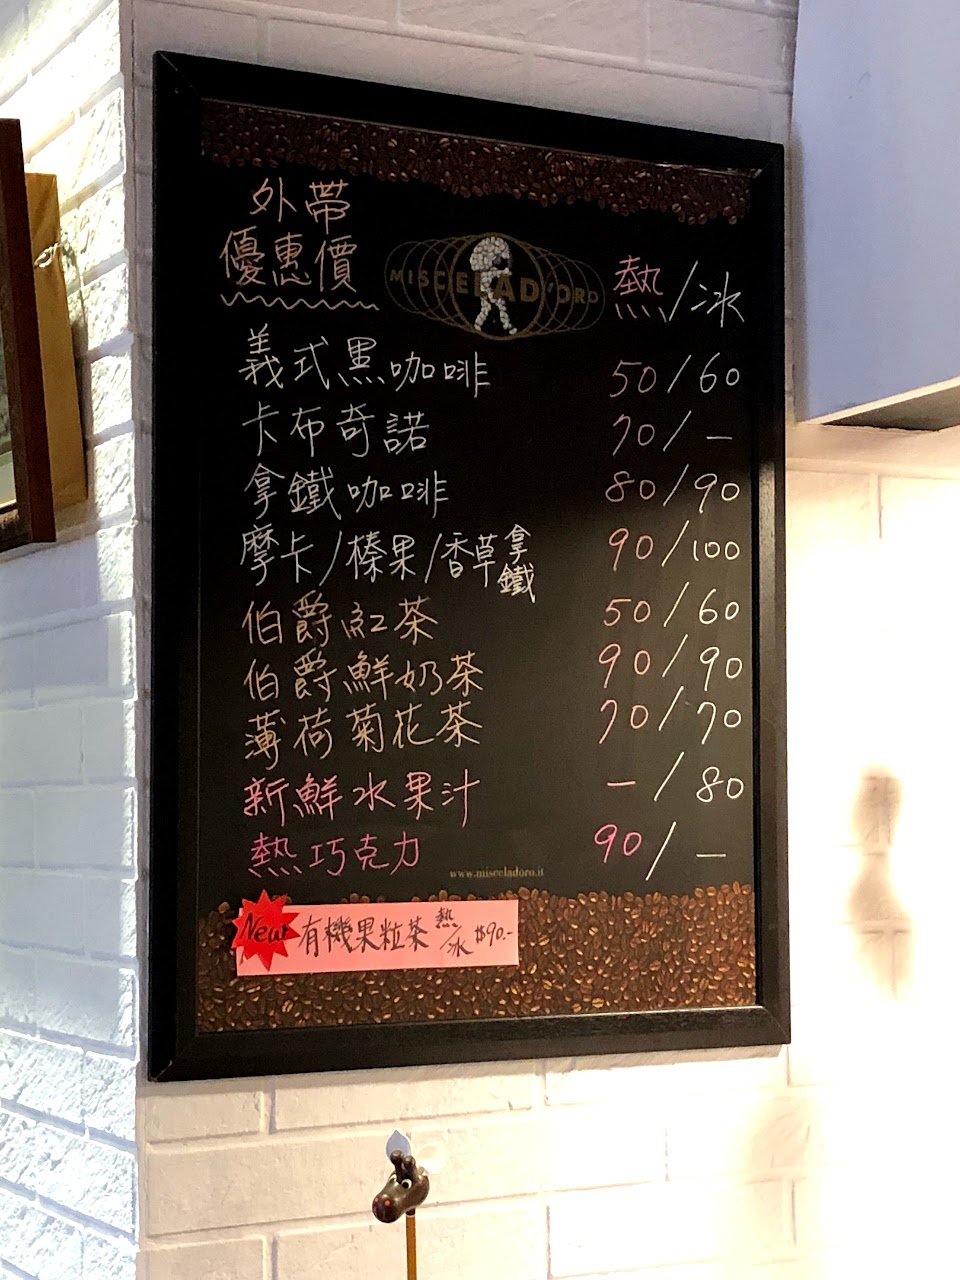 外帶
優惠價
MISCELAD'ORO
熱/冰
義式黑咖啡 50/60
卡布奇諾 70/—
拿鐵咖啡 80/90
摩卡/榛果/香草拿鐵 90/100
伯爵紅茶 50/60
伯爵鮮奶茶 90/90
薄荷菊花茶 70/70
新鮮水果汁 —/80
熱巧克力 90/—
www.misceladoro.it
New 有機果粒茶 熱/冰 $90.-